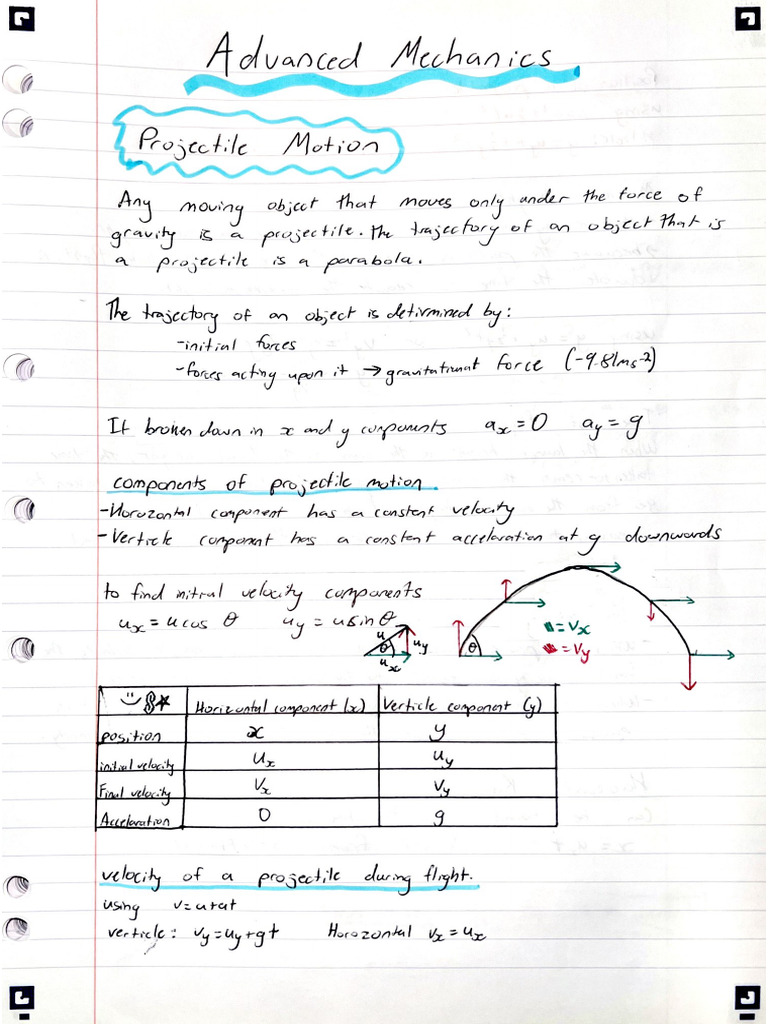 Advanced Mechanics
Projectile Motion
Any moving object that moves only under the force of
gravity is a projectile. The trajectory of an object that is
a projectile is a parabola.
The trajectory of an object is detirmined by:
-initial forces
-forces acting upon it → gravitational force (-9.81ms⁻²)
If broken down in x and y components aₓ=0 a_y=g
components of projectile motion
-Horozontal component has a constant velocity
-Verticle component has a constant acceleration at g downwards
to find initial velocity components
uₓ=u cos θ u_y=usinθ
u θ u_y
uₓ
θ
=Vₓ
=V_y
Horizontal component (x) Verticle component (y)
position x y
initial velocity Uₓ U_y
Final velocity Vₓ V_y
Acceleration 0 g
velocity of a projectile during flight.
using v=u+at
verticle: V_y=U_y+gt Horozontal Vₓ=Uₓ